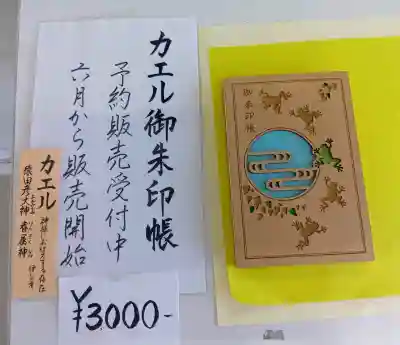 カエル御朱印帳
予約販売受付中
六月から販売開始
カエル
猿田彦大神 眷属神
¥3,000-
御朱印帳